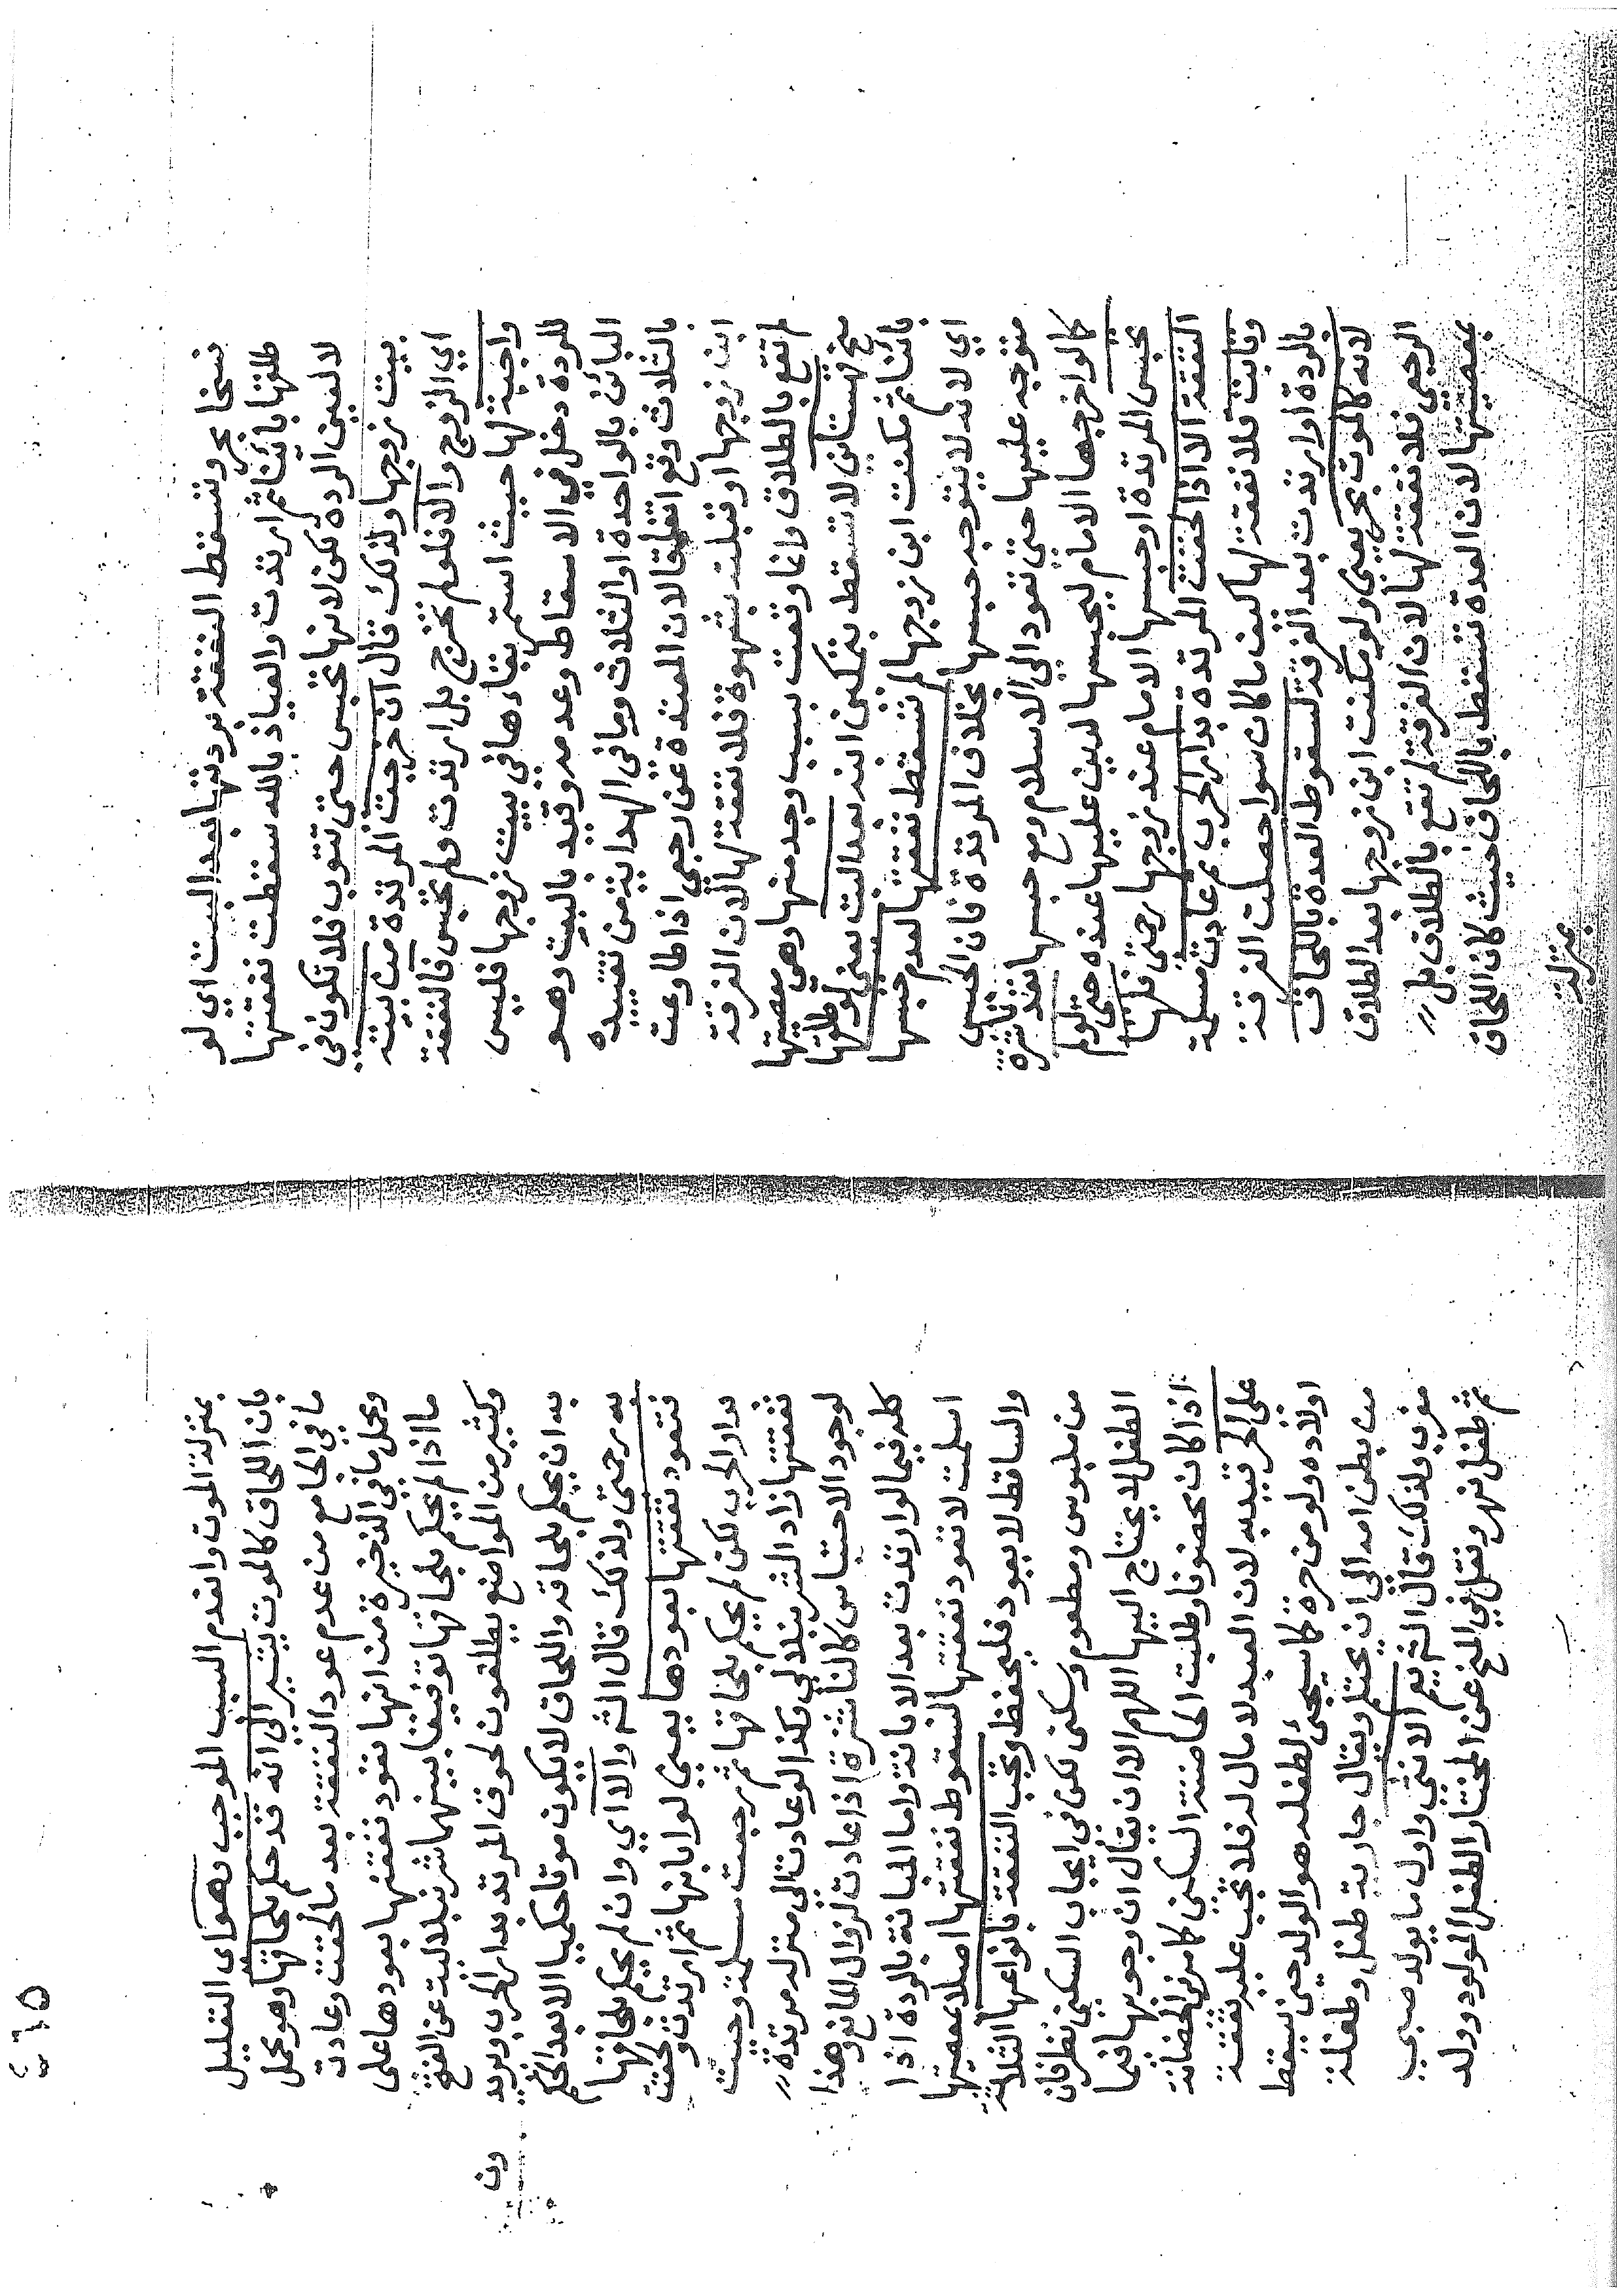 نسخا بحر وتسقط النفقة بردتها بعد البت اي لو
طلقها بائنا ثم ارتدت والعياذ بالله سقطت نفقتها
لا لعين الردة لكن لانها تحبس حتى تتوب فلا تكون في
بيت زوجها ولذلك قال ان خرجت المرتدة من بيته
اي الزوج والا فلو لم تخرج بل ارتدت ولم تحبس فالنفقة
واجبة لها حيث استمر بقاءها في بيت زوجها فليس
للردة دخل في الاسقاط وعدمه وقيد بالبت وهو
البائن بالواحدة او الثلاث وما في الهداية من تقييده
بالثلاث وقع اتفاقا لان المعتدة عن رجعي اذا طاوعت
ابن زوجها او قبلت بشهوة فلا نفقة لها لان الفرقة
لم تقع بالطلاق وانما وقعت بسبب وجد منها وهي معصيتها
منح تستاس لا تسقط بتمكين ابنه بعد البت يعني لو طلقها
بائنا ثم مكنت ابن زوجها لم تسقط نفقتها لعدم حبسها
اي لانه لا يتوجه حبسها بخلاف المرتدة فان الحبس
متوجه عليها حتى تعود الى الاسلام ومع حبسها تعد ناشزة
كما لو اخرجها الامام ليحبسها لدين عليها عنده حتى لو لم
يحبس المرتدة او حبسها الامام عند زوجها رحمتي فلها
النفقة الا اذا لحقت المرتدة بدار الحرب ثم عادت مسلمة
وتابت فلا نفقة لها كيف ما كان سوا حصلت الفرقة
بالردة او ارتدت بعد الفرقة لسقوط العدة باللحاق
لانه كالموت بحر يعني ولو مكنت ابن زوجها بعد الطلاق
الرجعي فلا نفقة لها لان الفرقة لم تقع بالطلاق بل
بمعصيتها لان العدة تسقط باللحاق حيث كان اللحاق
بمنزلة
٤٦٥
بمنزلة الموت وانعدم السبب الموجب وهو اي التعليل
بان اللحاق كالموت يشير الى انه قد حكم بلحاقها وهو محمل
ما في الجامع من عدم عود النفقة بعد ما لحقت وعادت
ومحمل ما في الذخيرة من انها تعود نفقتها بعودها على
ما اذا لم يحكم بلحاقها توفيقا بينهما شرنبلالية عن الفتح
وكثير من المواضع يطلقون لحوق المرتد بدار الحرب ويريدون
به ان يحكم بلحاقه واللحاق لا يكون موتا حكميا الا بعد الحكم
به رحمتي ولذلك قال الشر والا اي وان لم يحكم بلحاقها
فتعود نفقتها بعودها يعني لو ابانها ثم ارتدت ولحقت
بدار الحرب لكن لم يحكم بلحاقها ثم رجعت مسلمة وجبت
نفقتها زاد الشرنبلالي وكذا لو عادت الى منزله مرتدة
لوجود الاحتباس كالناشزة اذا عادت لزوال المانع وهذا
كله فيما لو ارتدت بعد الابانة واما المبانة بالردة اذا
اسلمت لا تعود نفقتها لسقوط نفقتها اصلا بمعصيتها
والساقط لا يعود فليحفظ وتجب النفقة بانواعها الثلاثة
من ملبوس ومطعوم وسكنى لكن في ايجاب السكنى نظر فان
الطفل لا يحتاج اليها اللهم الا ان يقال ان وجوبها فيما
اذا كان محضونا وطلبت الحاضنة السكنى كما مر في الحضانة
على الحر قيد به لان العبد لا مال له فلا تجب عليه نفقة
اولاده ولو من حرة كما سيجئ لطفله هو الولد حين يسقط
من بطن امه الى ان يحتلم ويقال جارية طفل وطفلة
مغرب ولذلك قال الشر يعم الانثى واول ما يولد صبي
ثم طفل نهر ونقل في المنح عن المختار الطفل المولود وولد